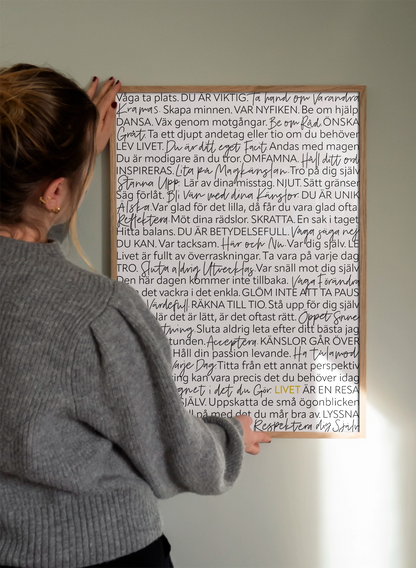 Våga ta plats. DU ÄR VIKTIG. Ta hand om Varandra
Kramas. Skapa minnen. VAR NYFIKEN. Be om hjälp
DANSA. Väx genom motgångar. Be om Råd. ÖNSKA
Gråt. Ta ett djupt andetag eller tio om du behöver
LEV LIVET. Du är ditt eget Facit. Andas med magen
Du är modigare än du tror. OMFAMNA. Håll ditt ord
INSPIRERAS. Lita på Magkänslan. Tro på dig själv
Stanna Upp. Lär av dina misstag. NJUT. Sätt gränser
Säg förlåt. Bli Vän med dina Känslor. DU ÄR UNIK
Älska. Var glad för det lilla, då får du vara glad ofta
Reflektera. Möt dina rädslor. SKRATTA. En sak i taget
Hitta balans. DU ÄR BETYDELSEFULL. Våga säga nej
DU KAN. Var tacksam. Här och Nu. Var dig själv. LE
Livet är fullt av överraskningar. Ta vara på varje dag
TRO. Sluta aldrig Utvecklas. Var snäll mot dig själv
Den här dagen kommer inte tillbaka. Våga Förändra
det vackra i det enkla. GLÖM INTE ATT TA PAUS
Värdefull. RÄKNA TILL TIO. Stå upp för dig själv
lär det är lätt, är det oftast rätt. Öppet Sinne
Sluta aldrig leta efter ditt bästa jag
stunden. Acceptera. KÄNSLOR GÅR ÖVER
Håll din passion levande. Ha tålamod
Varje Dag. Titta från ett annat perspektiv
ring kan vara precis det du behöver idag
i det du Gör. LIVET ÄR EN RESA
SJÄLV. Uppskatta de små ögonblicken
på med det du mår bra av. LYSSNA
Respektera dig Själv